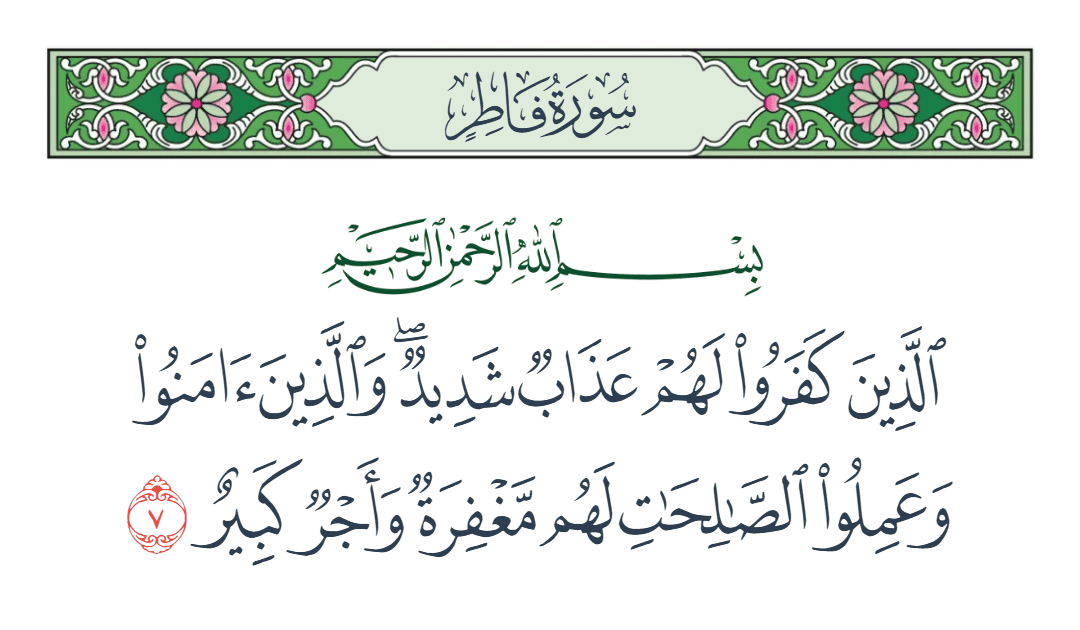 سُورَةُ فَاطِرٍ
بِسْمِ ٱللَّهِ ٱلرَّحْمَٰنِ ٱلرَّحِيمِ
ٱلَّذِينَ كَفَرُوا۟ لَهُمْ عَذَابٌ شَدِيدٌ ۖ وَٱلَّذِينَ ءَامَنُوا۟
وَعَمِلُوا۟ ٱلصَّـٰلِحَـٰتِ لَهُم مَّغْفِرَةٌ وَأَجْرٌ كَبِيرٌ ٧